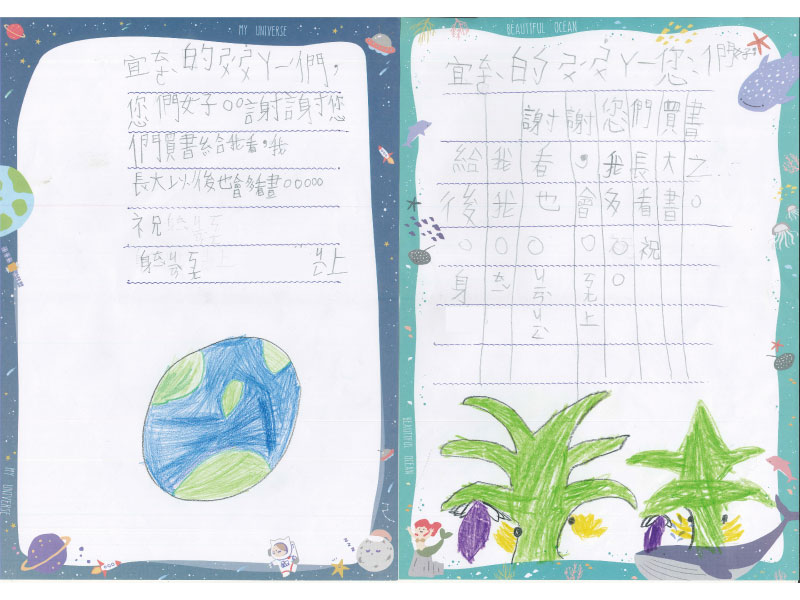 MY UNIVERSE
宜 的 ㄚ一們,
您們好。。謝謝您
們買書給我看,我
長大以後也會多看書。。。。。
祝
身 上
MY UNIVERSE
BEAUTIFUL OCEAN
宜 的 ㄚ一您們好
謝謝您們買書
給我看,我長大之
後我也會多看書。
。。。。。祝
身 。
上
BEAUTIFUL OCEAN